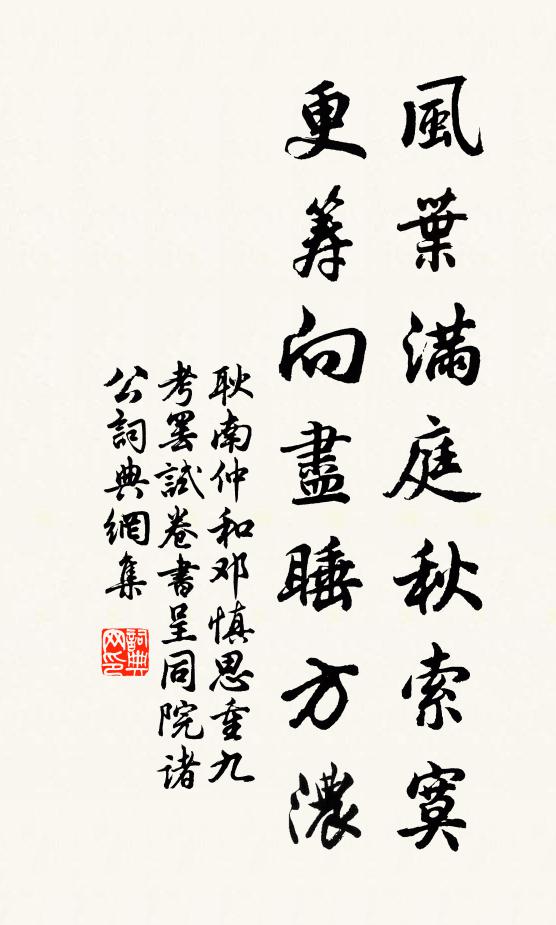 風葉滿庭秋索寞
更筹向盡睡方濃
耿南仲和邓慎思重九
考罢試卷書呈同院诸
公詞典網集
詞典
网印